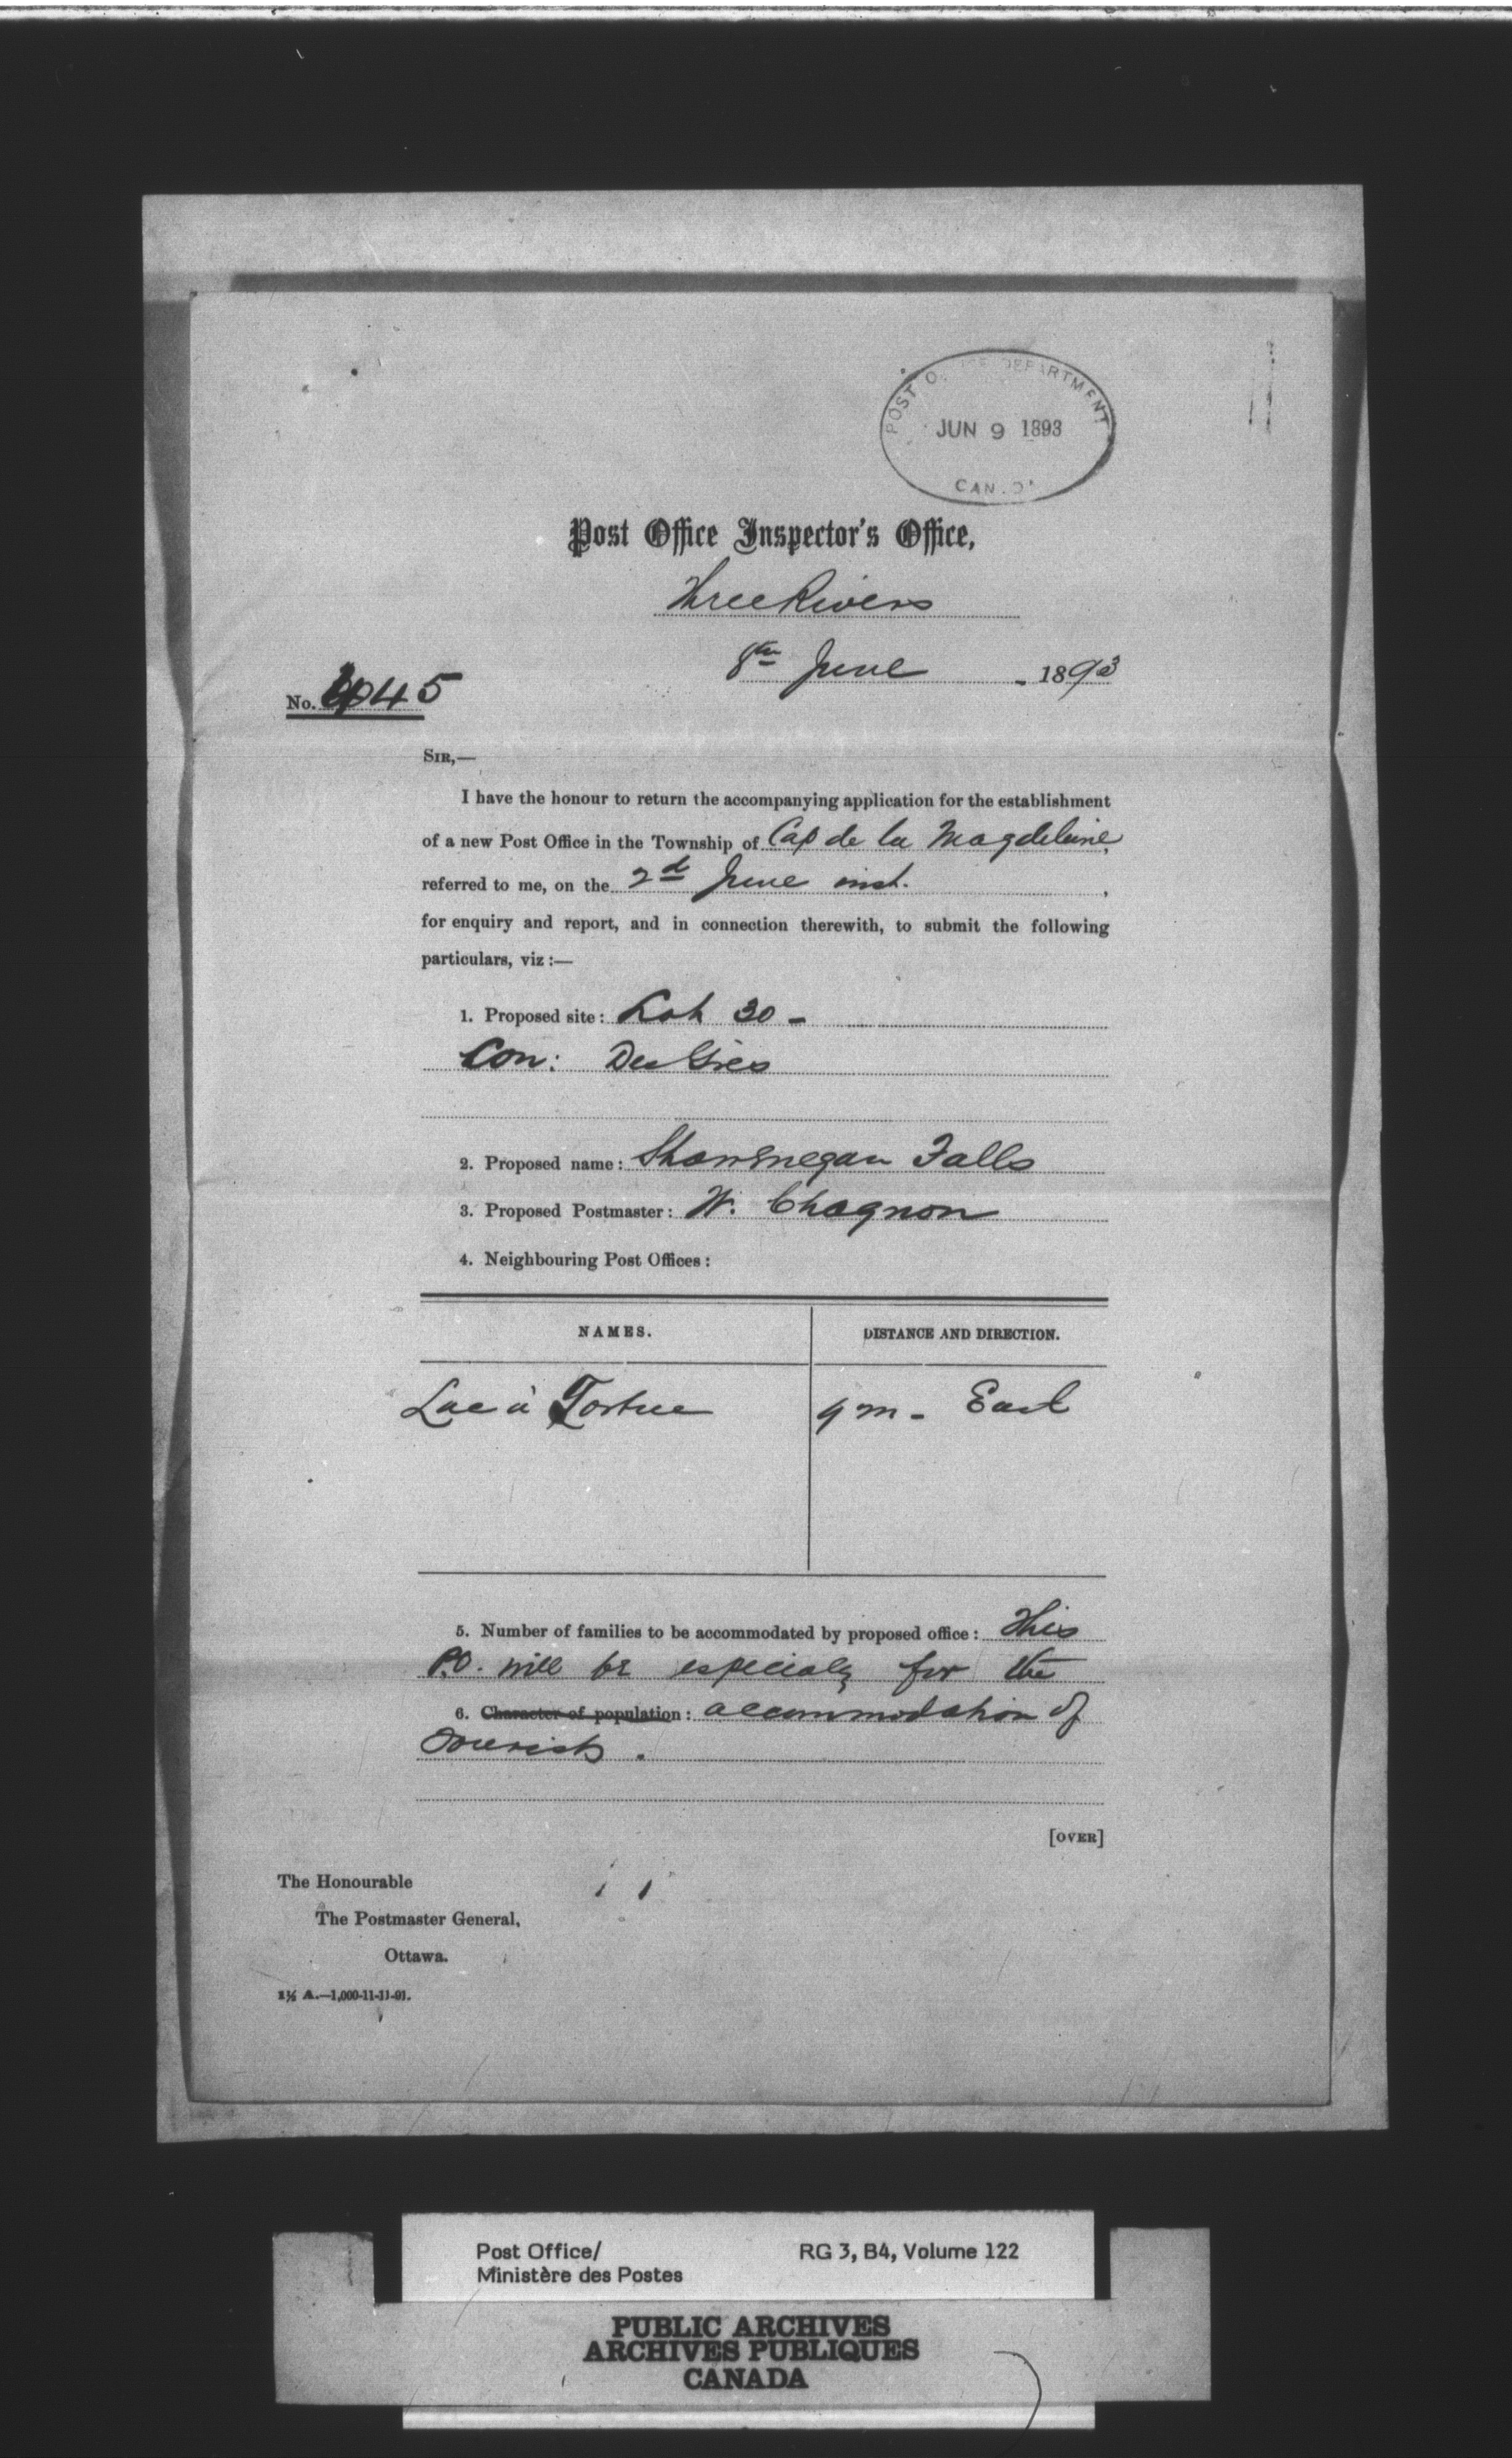 POST OFFICE DEPARTMENT
JUN 9 1893
CANADA
Post Office Inspector's Office,
Three Rivers
8th June 1893
No. 445
SIR,—
I have the honour to return the accompanying application for the establishment
of a new Post Office in the Township of Cap de la Magdeleine,
referred to me, on the 2d June inst.,
for enquiry and report, and in connection therewith, to submit the following
particulars, viz :—
1. Proposed site: Lot 30 -
Con: Des Grès
2. Proposed name: Shawenegan Falls
3. Proposed Postmaster: W. Chagnon
4. Neighbouring Post Offices:
NAMES. DISTANCE AND DIRECTION.
Lac à Tortue 9 m - East
5. Number of families to be accommodated by proposed office: This
P.O. will be especialy for the
6. Character of population: accommodation of
tourists.
[OVER]
The Honourable
The Postmaster General,
Ottawa.
1½ A.—1,000-11-11-91.
Post Office/ RG 3, B4, Volume 122
Ministère des Postes
PUBLIC ARCHIVES
ARCHIVES PUBLIQUES
CANADA